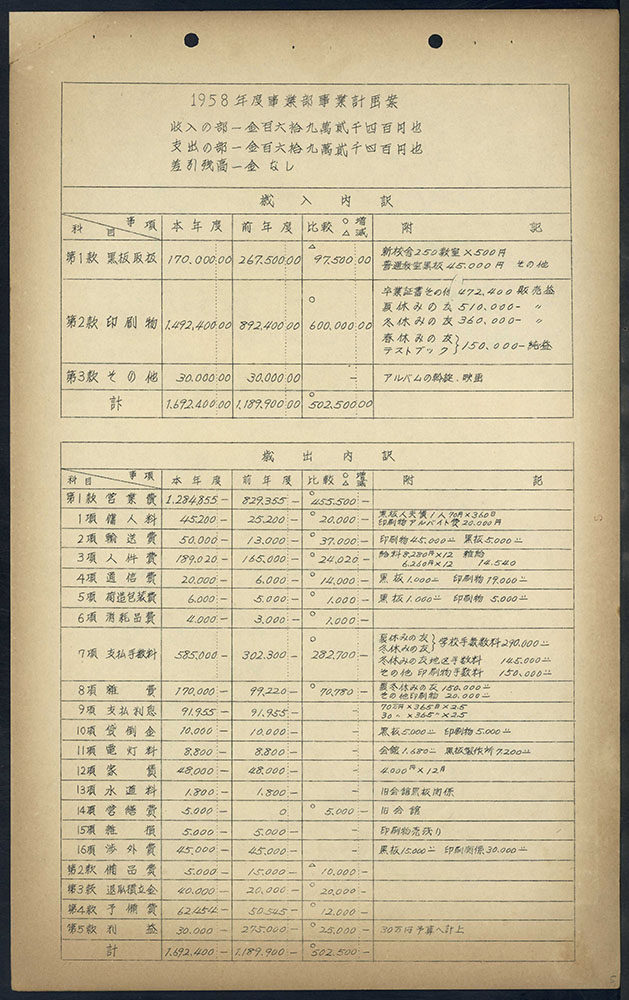 1958年度事業部事業計画案
収入の部一金百六拾九萬貳千四百円也
支出の部一金百六拾九萬貳千四百円也
差引残高一金なし
歳入内訳
科目 事項 本年度 前年度 比較 ○増 △減 附記
第1款 黒板取扱 170.000:00 267.500:00 △ 97.500:00 新校舎250教室×500円
普通教室黒板45.000円 その他
第2款 印刷物 1,492,400:00 892,400:00 ○ 600,000:00 卒業証書その他 472,400 販売益
夏休みの友 510,000- 〃
冬休みの友 360,000- 〃
春休みの友
テストブック }150,000-純益
第3款 その他 30.000:00 30.000:00 - アルバムの斡旋.映画
計 1.692.400:00 1.189.900:00 ○ 502.500:00
歳出内訳
科目 事項 本年度 前年度 比較 ○増 △減 附記
第1款 営業費 1,284,855- 829.355- ○ 455.500-
1項 傭人料 45.200- 25.200- ○ 20.000- 黒板人夫賃1人70円×360日
印刷物アルバイト費20.000円
2項 輸送費 50.000- 13.000- ○ 37.000- 印刷物45.000- 黒板5.000-
3項 人件費 189.020- 165.000- ○ 24.020- 給料8.280円×12 雑給
6.260円×12 14.540
4項 通信費 20.000- 6.000- ○ 14.000- 黒板1.000- 印刷物19.000-
5項 荷造包装費 6.000- 5.000- ○ 1.000- 黒板1.000- 印刷物5.000-
6項 消耗品費 4.000- 3.000- ○ 1.000-
7項 支払手数料 585.000- 302.300- ○ 282.700- 夏休みの友
冬休みの友 }学校手数料290.000-
冬休みの友地区手数料 145.000-
その他印刷物手数料 150.000-
8項 雑費 170,000- 99,220- ○ 70.780- 夏冬休みの友 150.000-
その他印刷物 20.000-
9項 支払利息 91.955- 91.955- - 70万円×365日×2.5
30〃×365〃×2.5
10項 貸倒金 10,000- 10.000- - 黒板5.000- 印刷物5.000-
11項 電灯料 8.800- 8.800- - 会館1.680- 黒板製作所7.200-
12項 家賃 48,000- 48.000- - 4.000円×12月
13項 水道料 1.800- 1.800- - 旧会館黒板関係
14項 営繕費 5.000- 0 ○ 5.000- 旧会館
15項 雑損 5.000- 5.000- - 印刷物売残り
16項 渉外費 45.000- 45.000- - 黒板15.000- 印刷関係30.000-
第2款 備品費 5.000- 15.000- △ 10.000-
第3款 退取積立金 40.000- 20.000- ○ 20.000-
第4款 予備費 62.454- 50.545- ○ 12.000-
第5款 利益 30.000- 275.000- ○ 25.000- 30万円予算へ計上
計 1.692.400- 1.189.900- ○ 502.500-